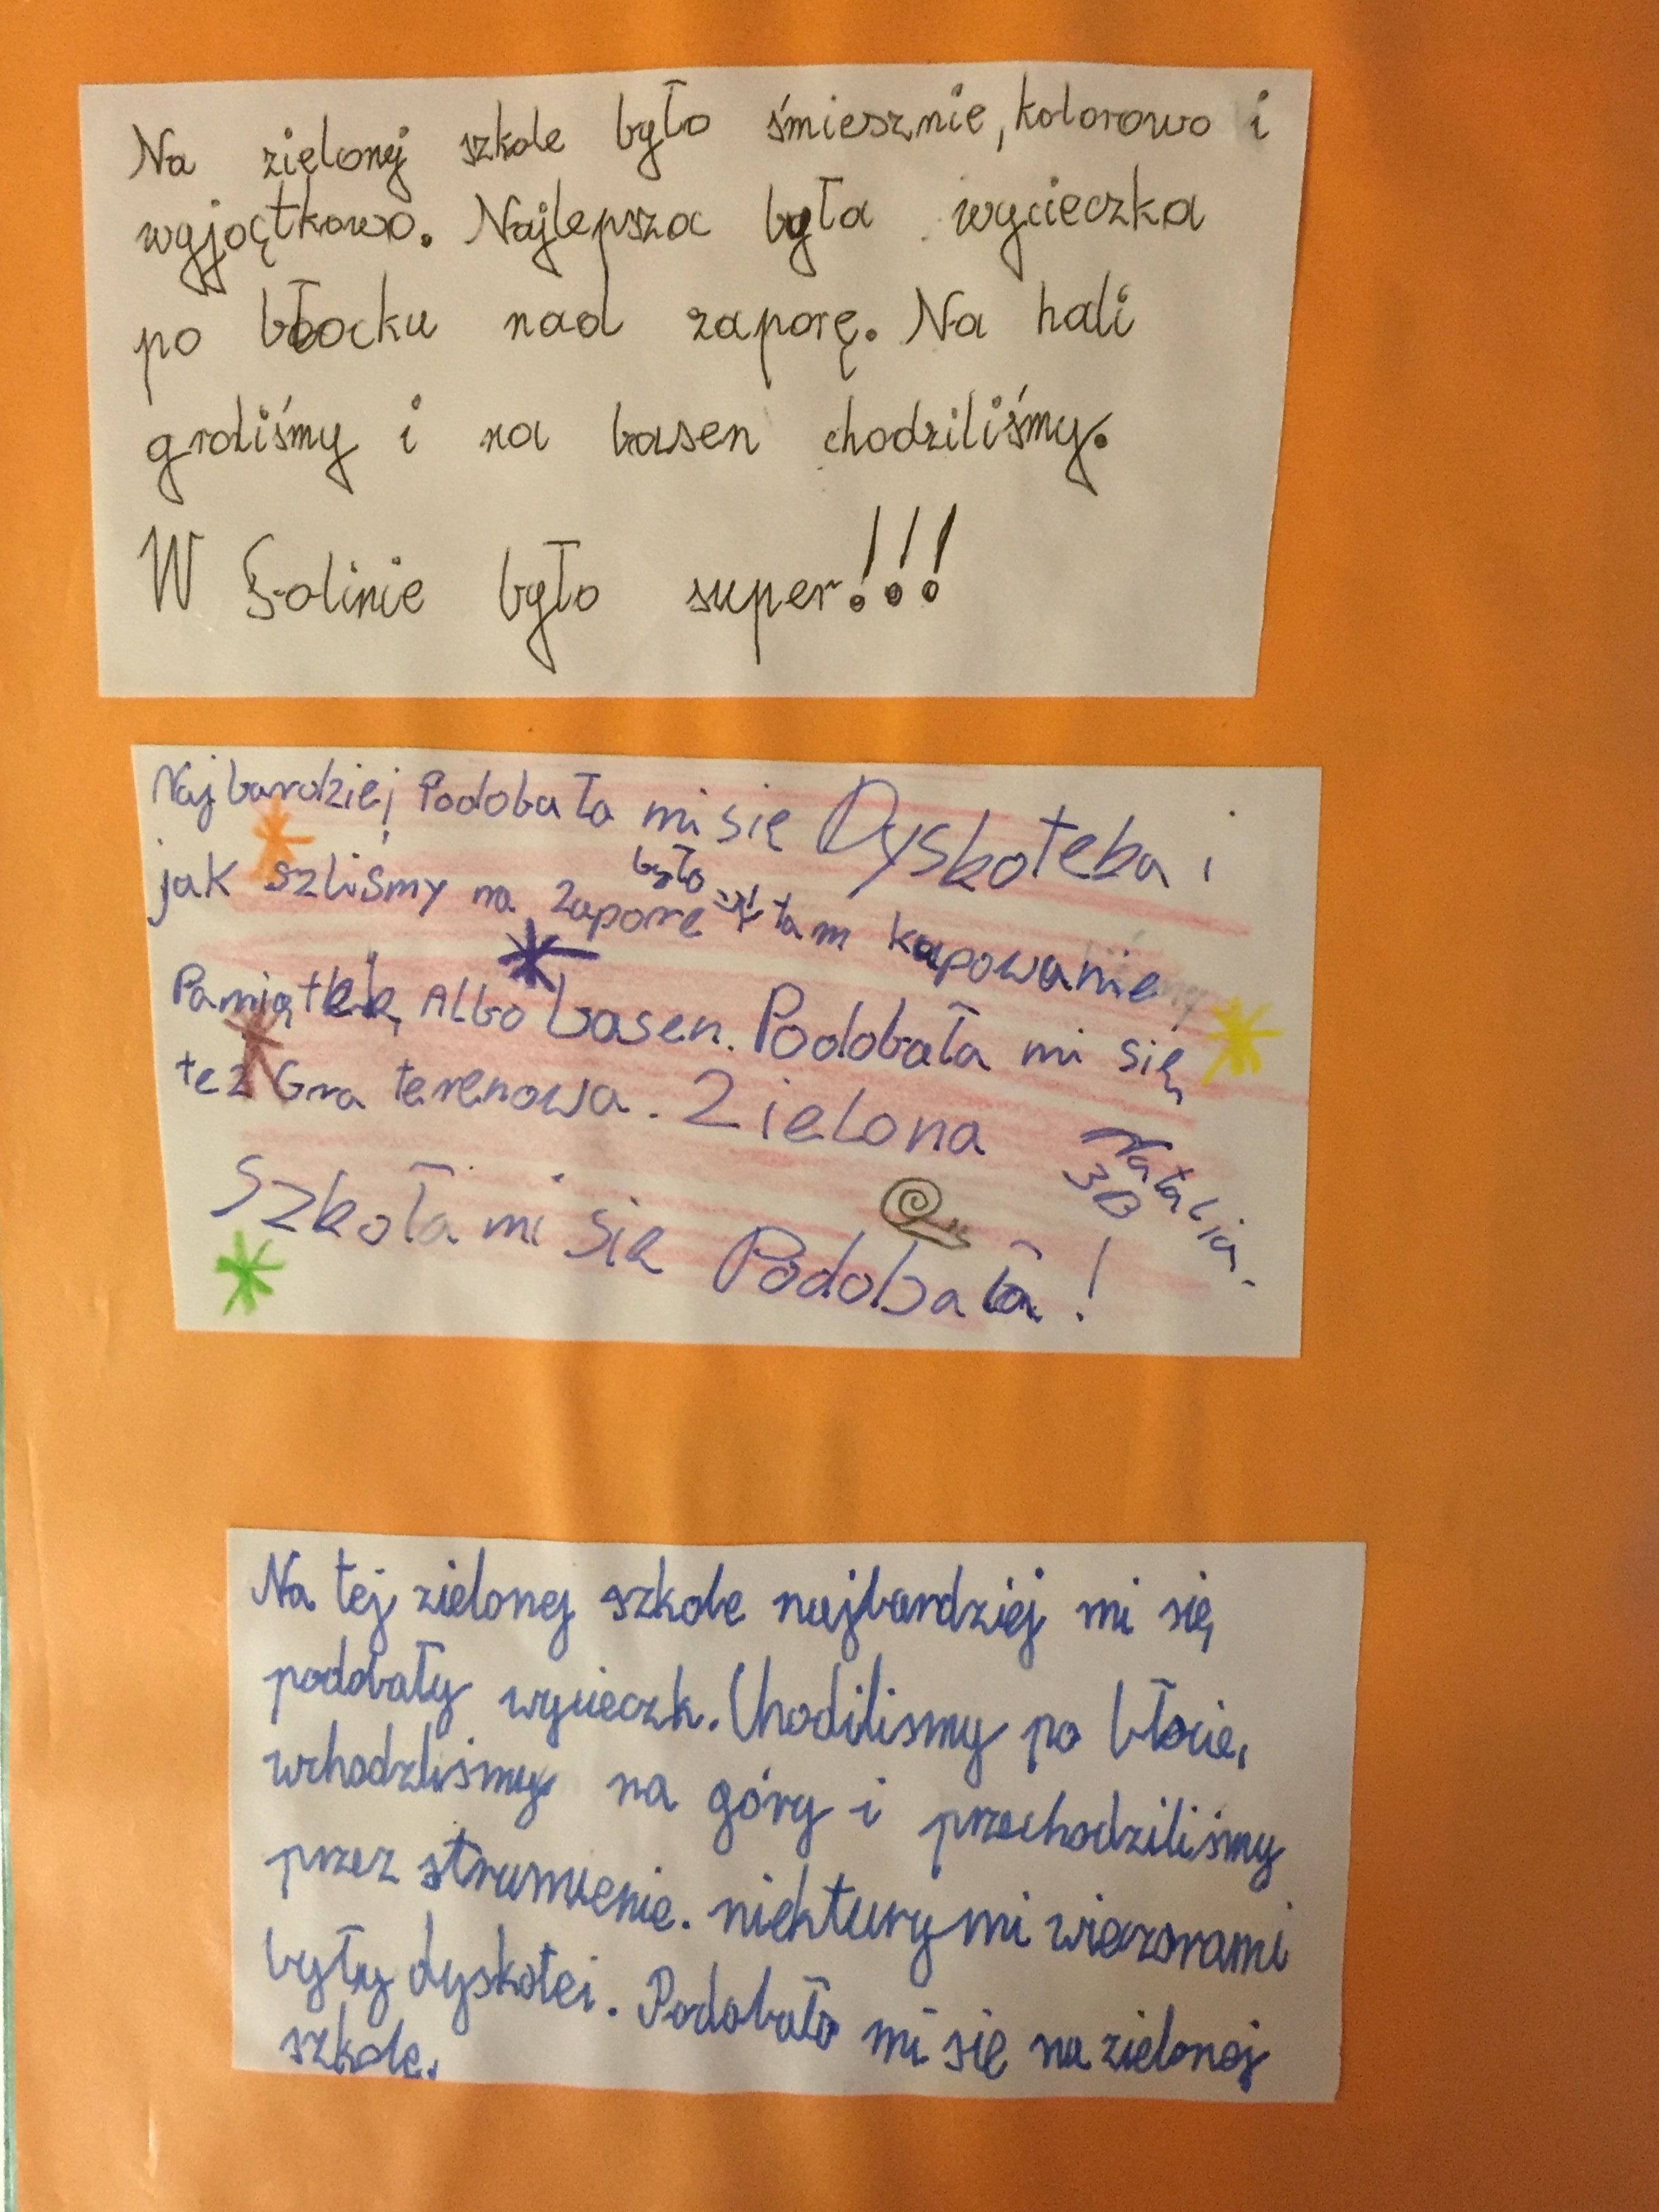 Na zielonej szkole było śmiesznie, kolorowo i
wyjoątkowo. Najlepsza była wycieczka
po błocku nad zaporę. Na hali
graliśmy i na basen chodziliśmy.
W Solinie było super!!!
Najbardziej Podobała mi się Dyskoteka i
jak szliśmy na zaporę było tam kupowanie
Pamiątek, Albo basen. Podobała mi się
też Gra terenowa. Zielona
Szkoła mi się Podobała!
Natalia.
3B
Na tej zielonej szkole najbardziej mi się
podobały wycieczk. Chodilismy po błocie,
wchodzliśmy na góry i przechodziliśmy
przez strumienie. niektury mi wieczorami
były dyskotei. Podobało mi się na zielonej
szkole.